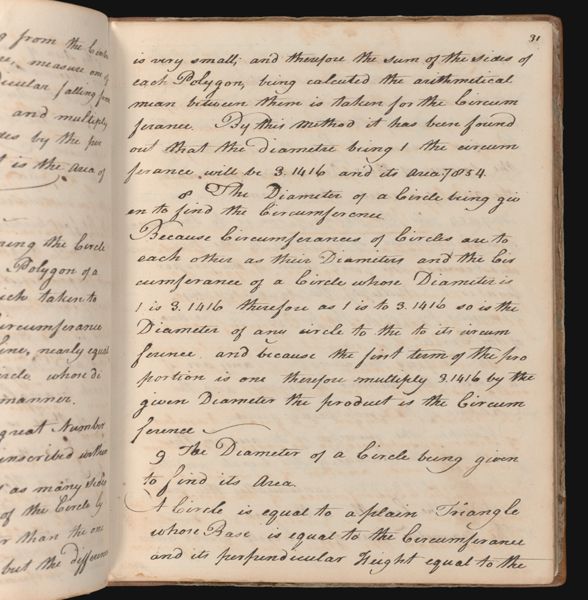 g from the
measure one of
dicular falling from
and multiply
des by the per
t is the area of
ring the Circle
Polygon of a
uch taken to
ircumferance
line, nearly equal
ircle whose di
manner.
great Number
inscribed within
t as many sides
of the Circle by
r than the one
but the difference
31
is very small; and therefore the sum of the sides of
each Polygon, being calcuted the arithmetical
mean between them is taken for the Circum
ferance. By this Method it has been found
out that the diametre being 1 the circum
ferance will be 3.1416 and its area .7854
8 The Diameter of a Circle being giv
en to find the Circumference
Because Circumferances of Circles are to
each other as their Diameters and the Cir
cumferance of a Circle whose Diameter is
1 is 3.1416 therefore as 1 is to 3.1416 so is the
Diameter of any circle to the to its circum
ference and because the first term of the pro
portion is one therefore multiply 3.1416 by the
given Diameter the product is the Circum
ference
9 The Diameter of a Circle being given
to find its Area.
A Circle is equal to a plain Triangle
whose Base is equal to the Circumferance
and its perpendicular Height equal to the